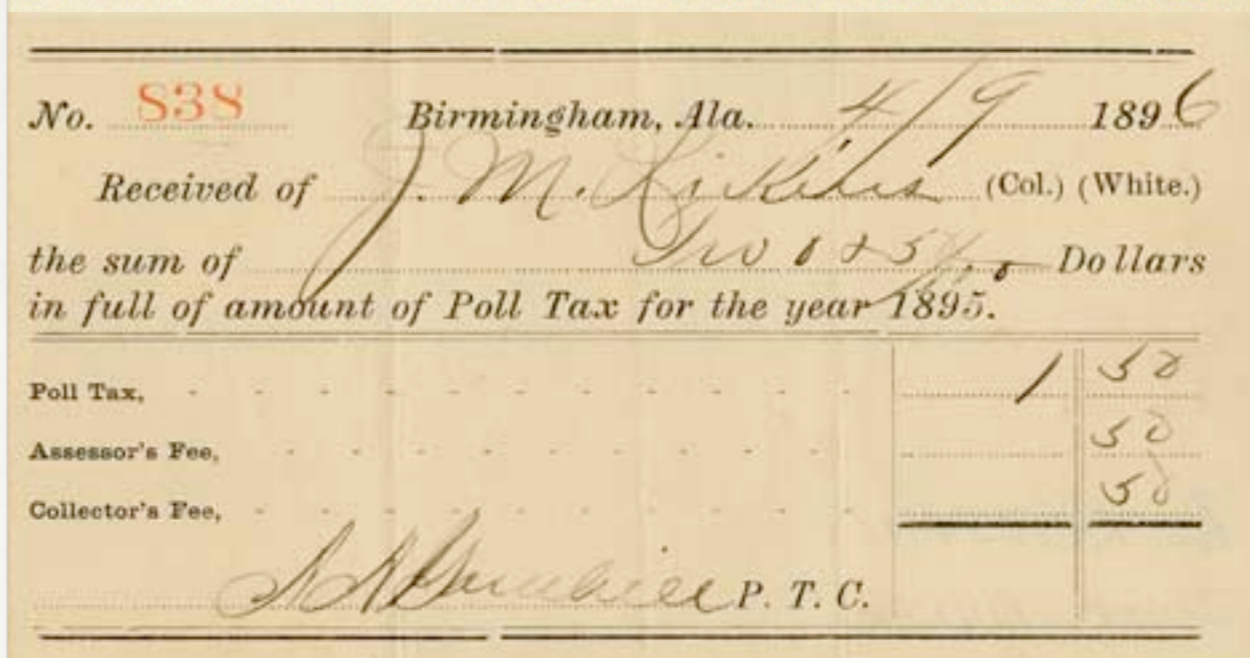 No. 838 Birmingham, Ala. 4/9 1896
Received of J. M. (Col.) (White.)
the sum of Two & 50/100 Dollars
in full of amount of Poll Tax for the year 1895.
Poll Tax, - - - - - - - - - - - 1 50
Assessor's Fee, - - - - - - - - - 50
Collector's Fee, - - - - - - - - - - 50
P. T. C.